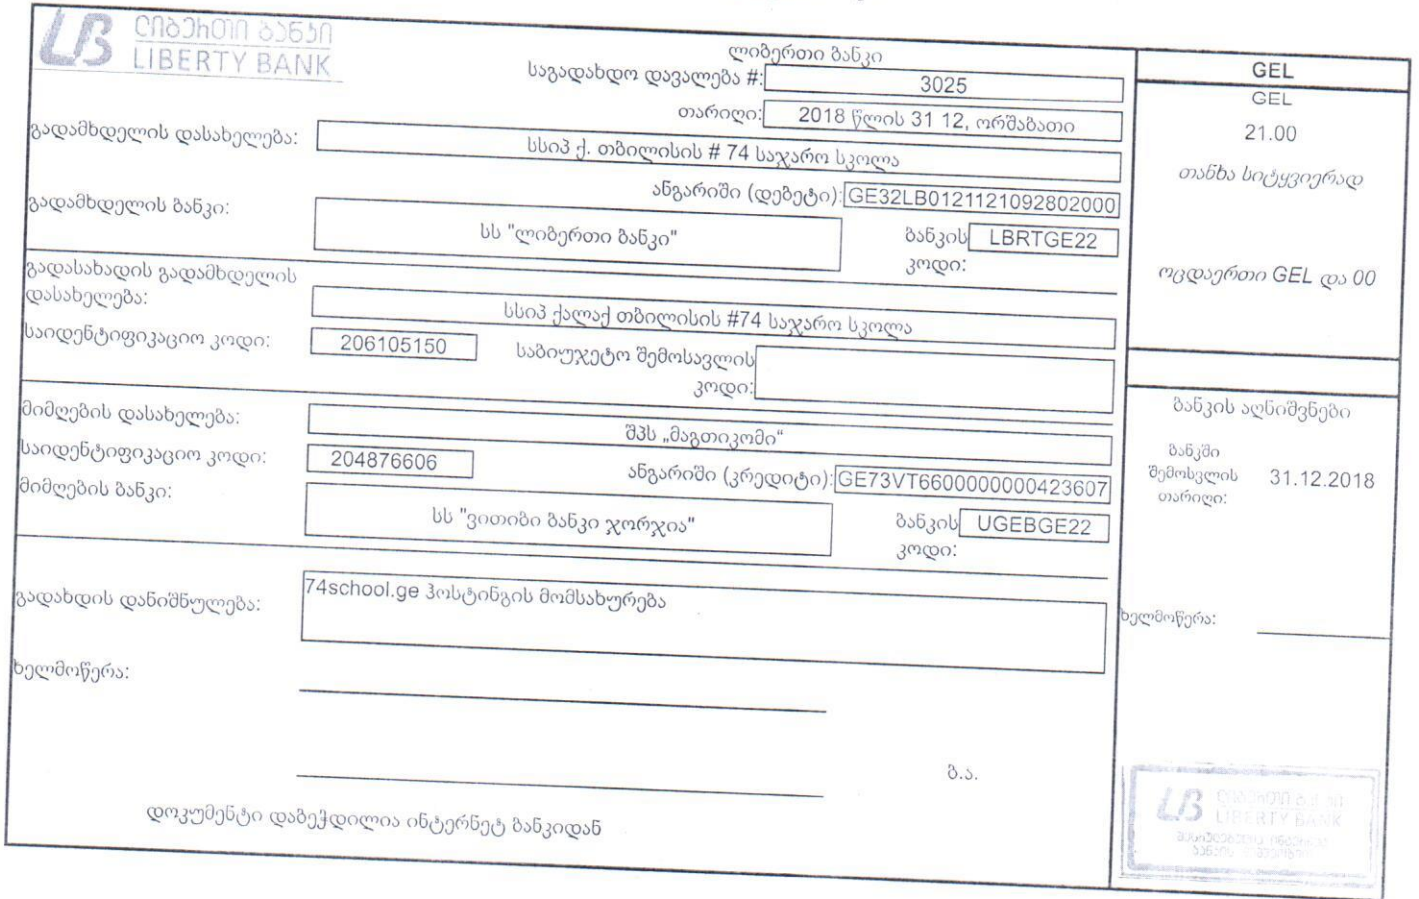 ლიბერთი ბანკი
LIBERTY BANK
ლიბერთი ბანკი
საგადახდო დავალება #: 3025
თარიღი: 2018 წლის 31 12, ორშაბათი
გადამხდელის დასახელება: სსიპ ქ. თბილისის # 74 საჯარო სკოლა
ანგარიში (დებეტი): GE32LB0121121092802000
გადამხდელის ბანკი: სს "ლიბერთი ბანკი" ბანკის კოდი: LBRTGE22
გადასახადის გადამხდელის
დასახელება: სსიპ ქალაქ თბილისის #74 საჯარო სკოლა
საიდენტიფიკაციო კოდი: 206105150 საბიუჯეტო შემოსავლის
კოდი:
მიმღების დასახელება: შპს „მაგთიკომი“
საიდენტიფიკაციო კოდი: 204876606 ანგარიში (კრედიტი): GE73VT6600000000423607
მიმღების ბანკი: სს "ვითიბი ბანკი ჯორჯია" ბანკის კოდი: UGEBGE22
გადახდის დანიშნულება: 74school.ge ჰოსტინგის მომსახურება
ხელმოწერა:
ბ.ა.
დოკუმენტი დაბეჭდილია ინტერნეტ ბანკიდან
GEL
GEL
21.00
თანხა სიტყვიერად
ოცდაერთი GEL და 00
ბანკის აღნიშვნები
ბანკში
შემოსვლის 31.12.2018
თარიღი:
ხელმოწერა:
LIBERTY BANK